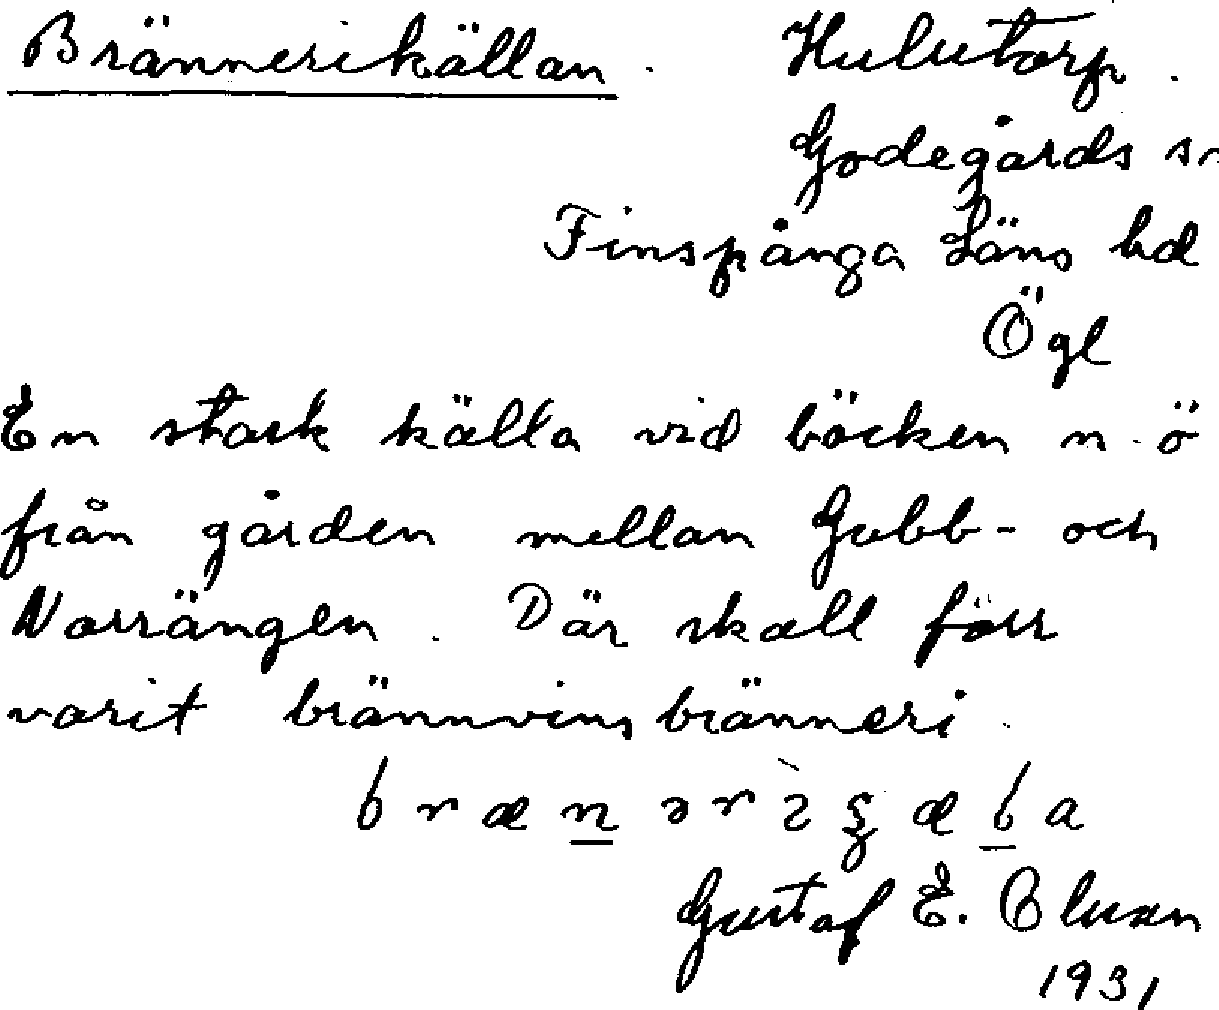 Brännerikällan. Hulutorp.
Godegårds sn
Finspånga Läns hd
Ögl
En stark källa vid bäcken n.ö
från gården mellan Gubb- och
Norrängen. Där skall förr
varit brännvinsbränneri.
Gustaf E.
1931